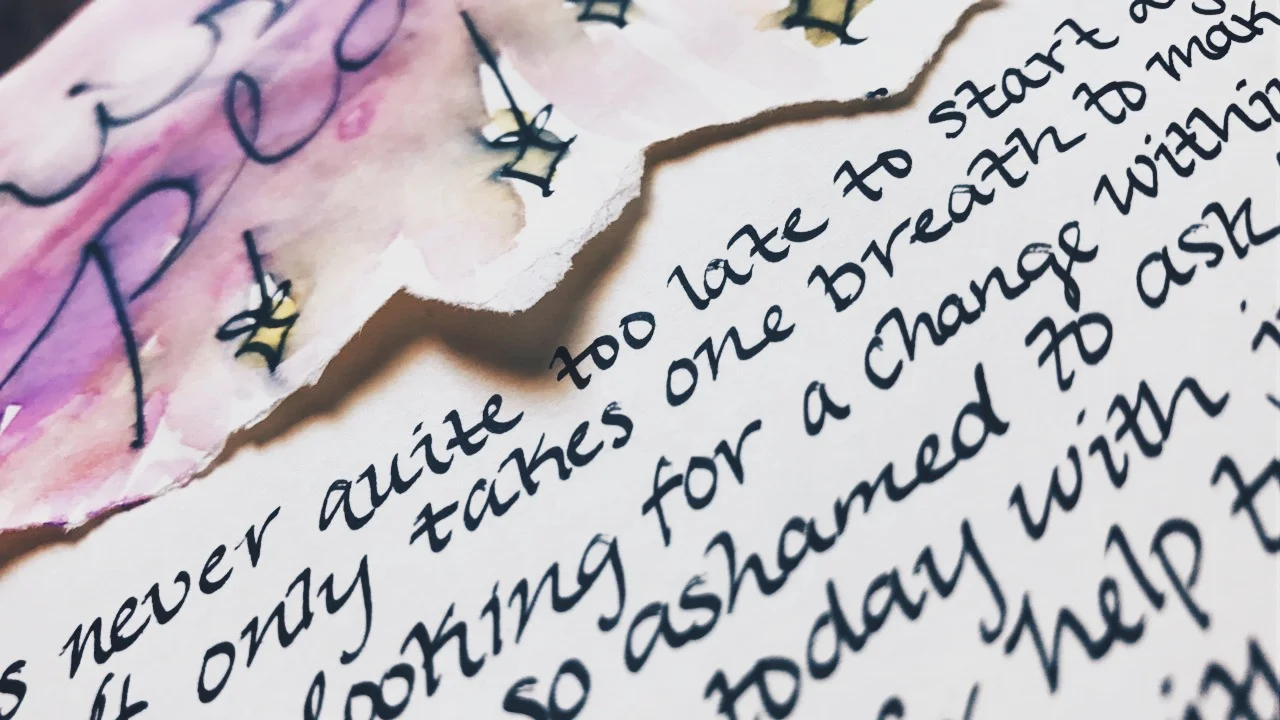 Peo
s never quite too late to start a
ft only takes one breath to mak
looking for a change within
so ashamed to ask
today with
help t
with